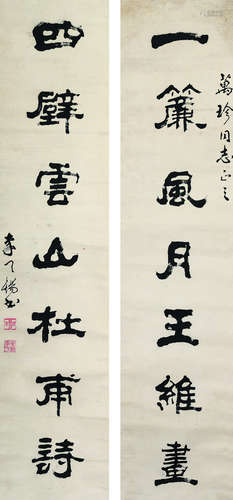 萬珍同志正之
一簾風月王維畫
四壁雲山杜甫詩
李天揚書